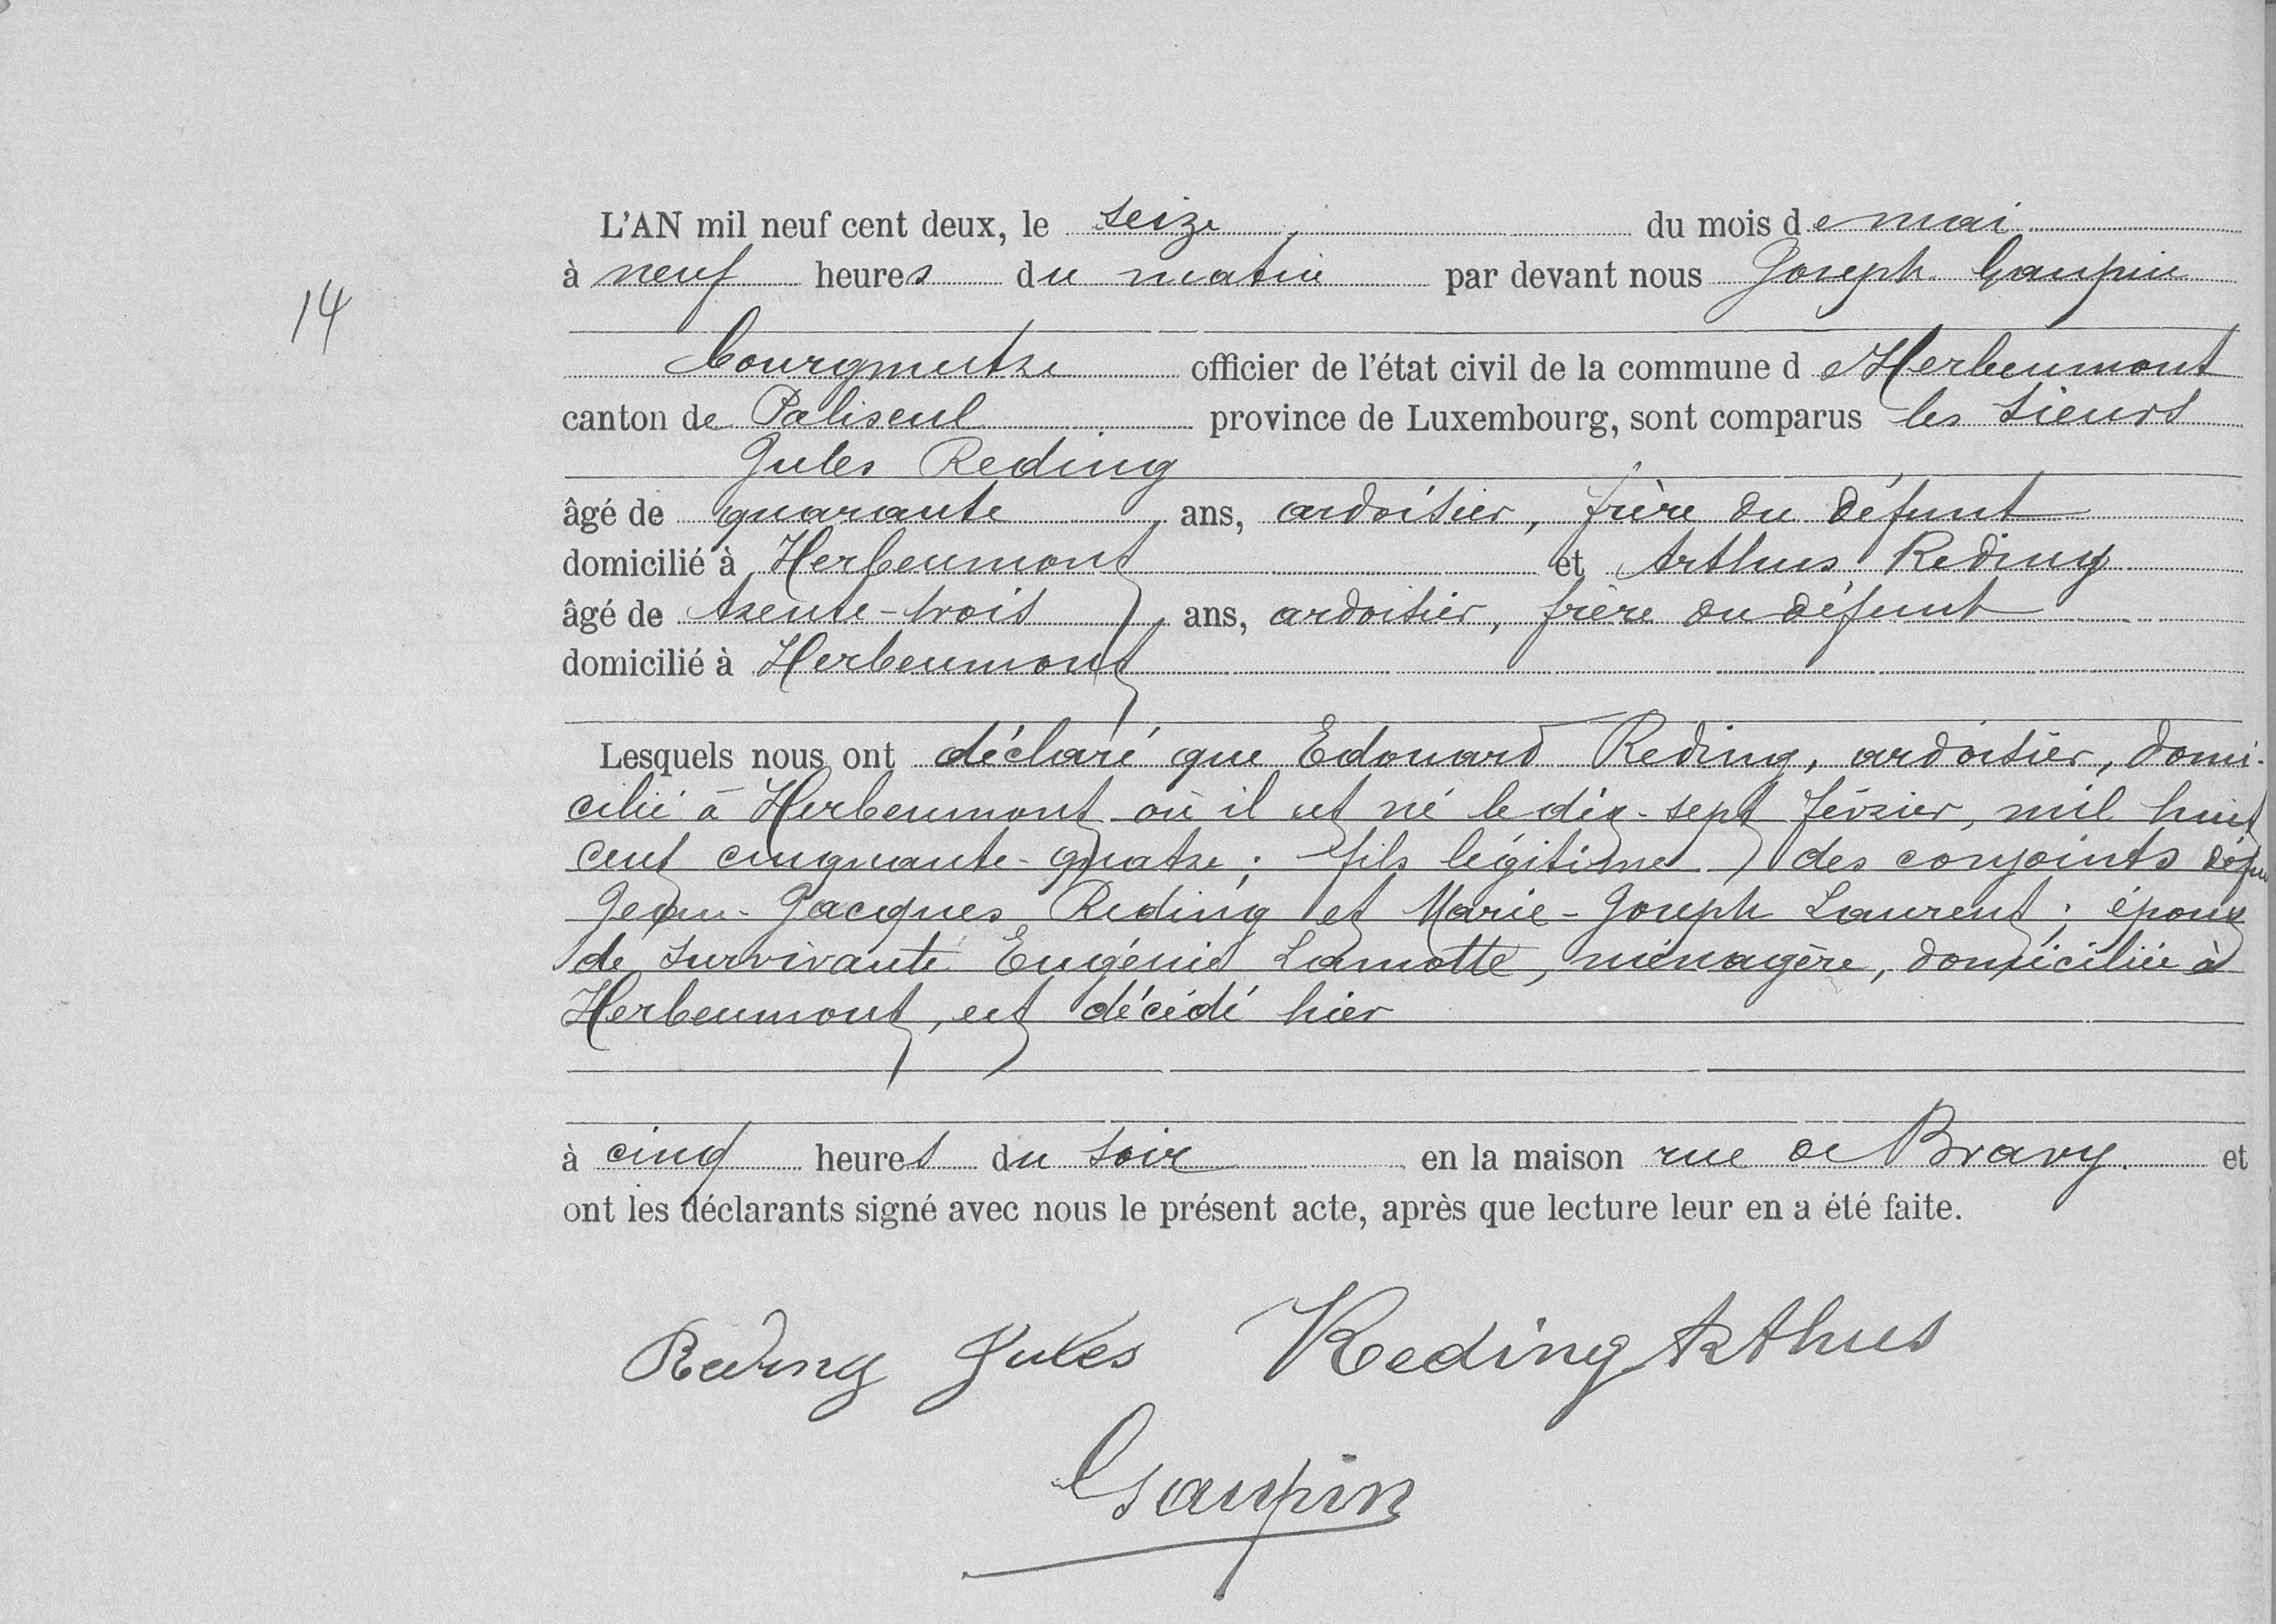 L'AN mil neuf cent deux, le seize, du mois de mai
14
à neuf heures du matin par devant nous Joseph Gaupin
bourgmestre officier de l'état civil de la commune d'Herbeumont
canton de Paliseul province de Luxembourg, sont comparus les sieurs
Jules Reding
âgé de quarante ans, ardoisier, frère du défunt
domicilié à Herbeumont et Arthur Reding
âgé de trente-trois ans, ardoisier, frère du défunt
domicilié à Herbeumont
Lesquels nous ont déclaré que Edouard Reding, ardoisier, domi-
cilié à Herbeumont où il est né le dix-sept février, mil huit
cent cinquante-quatre; fils légitime des conjoints défun
Jean-Jacques Reding et Marie-Joseph Laurent; époux
de survivante Eugénie Lamotte, ménagère, domiciliée à
Herbeumont, est décédé hier
à cinq heures du soir en la maison rue de Bravy. et
ont les déclarants signé avec nous le présent acte, après que lecture leur en a été faite.
Reding Jules Reding Arthur
Gaupin